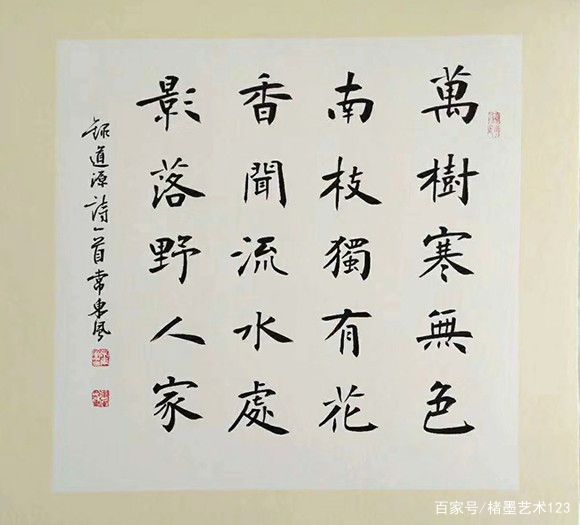 萬樹寒無色
南枝獨有花
香聞流水處
影落野人家
錄道源詩一首常東風
百家号/楮墨艺术123